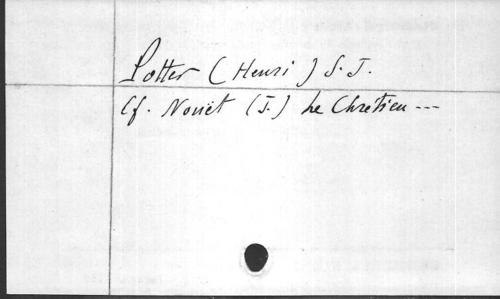 Potter (Henri) S.J.
Cf. Nouët (J.) Le Chrétien ---